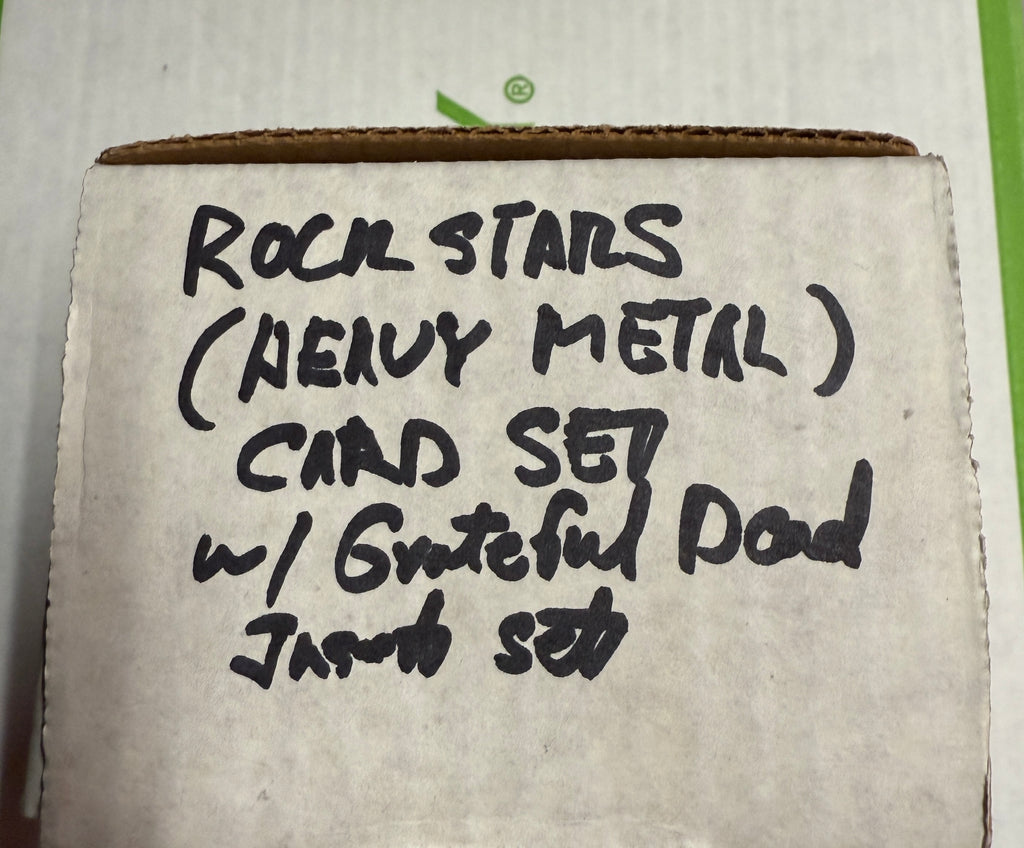 ®
ROCK STARS
(HEAVY METAL)
CARD SET
w/ Grateful Dead
Insert set